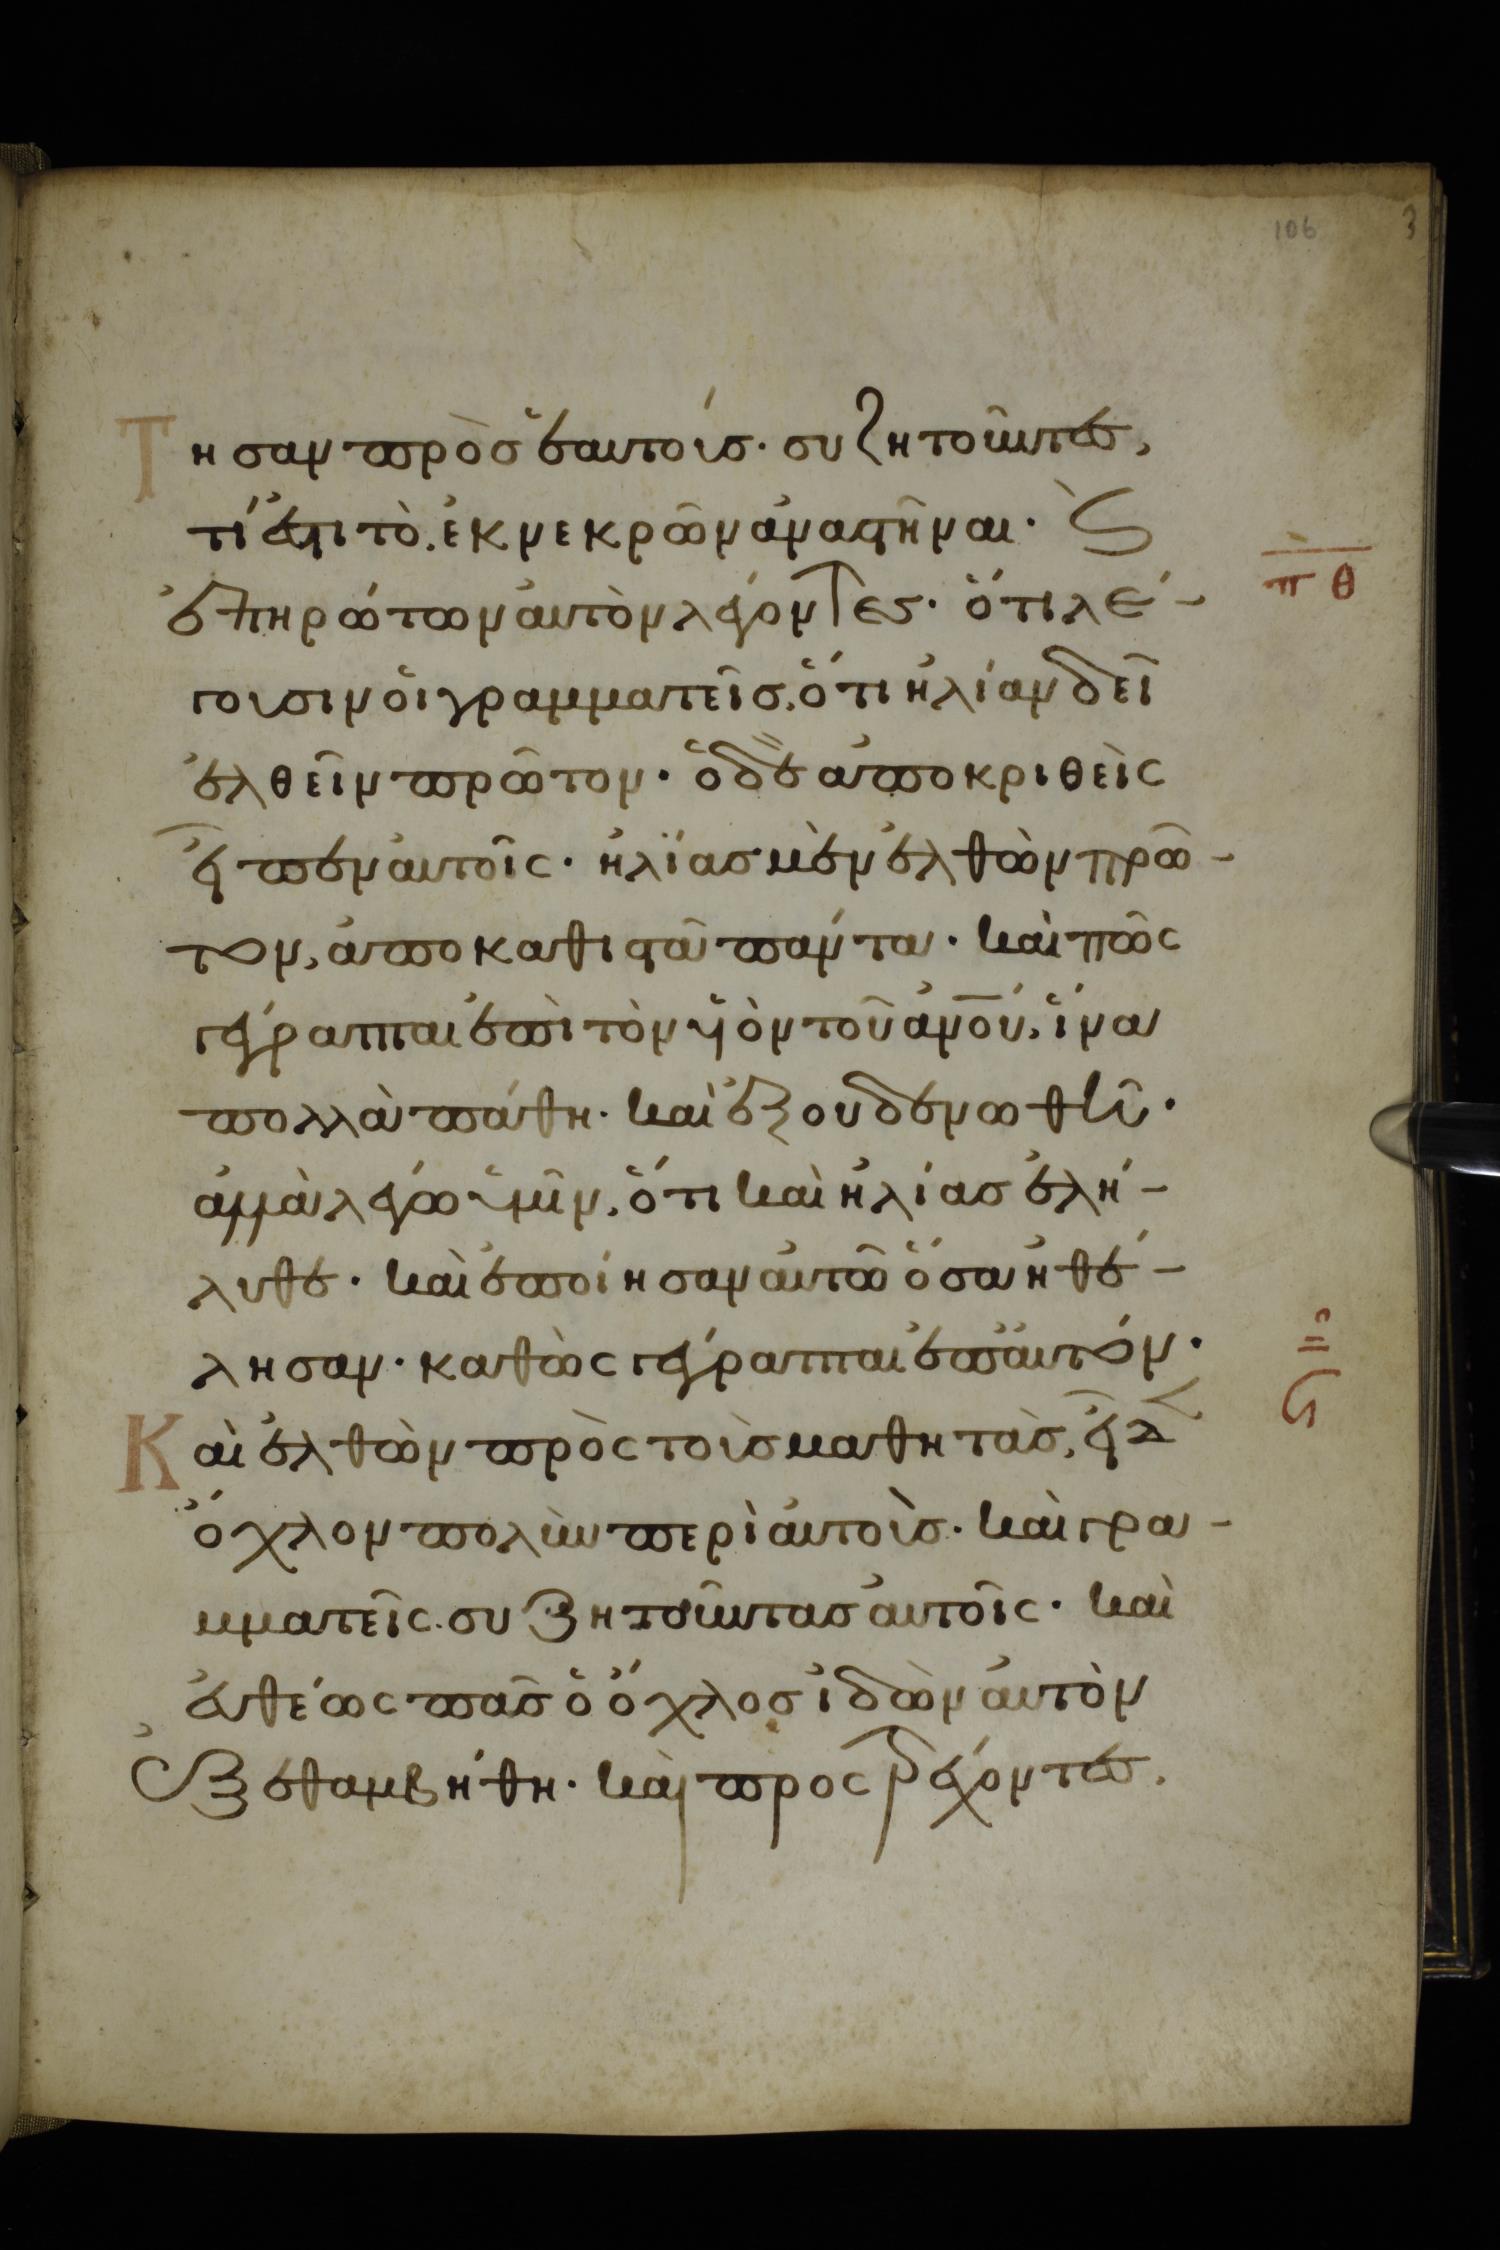 106 3
Τησαν πρὸσ ἑαυτούσ· συζητοῦντεσ,
τί ἐστι τὸ. ἐκ νεκρῶν ἀναστῆναι· Ϛ̀
π̅θ̅
ἐπηρώτων αὐτὸν λέγοντες· ὅτι λέ-
γουσιν οἱ γραμματεῖσ. ὅτι ἠλίαν δεῖ
ἐλθεῖν πρῶτον· ὁ δὲ ἀποκριθεὶς
εἶπεν αὐτοῖς· ἠλίασ μὲν ἐλθὼν πρῶ-
τον, ἀποκαθιστᾶ πάντα· καὶ πῶς
γέγραπται ἐπὶ τὸν υἱὸν τοῦ α̅ν̅ο̅υ̅. ἵνα
πολλὰ πάθη· καὶ ἐξουδενωθῆ·
ἀλλὰ λέγω ὑμῖν. ὅτι καὶ ἠλίασ ἐλή-
λυθε· καὶ ἐποίησαν αὐτῶ ὅσα ἠθέ-
λησαν· καθὼς γέγραπται ἐπ' αὐτόν·
Καὶ ἐλθὼν πρὸς τοὺσ μαθητὰσ. εἶδ
ὄχλον πολὺν περὶ αὐτοὺσ· καὶ γρα-
μματεῖς. συζητοῦντασ αὐτοῖς· καὶ
εὐθέως πᾶσ ὁ ὄχλοσ ἰδὼν αὐτὸν
ἐξεθαμβήθη· καὶ προςτρέχοντεσ.